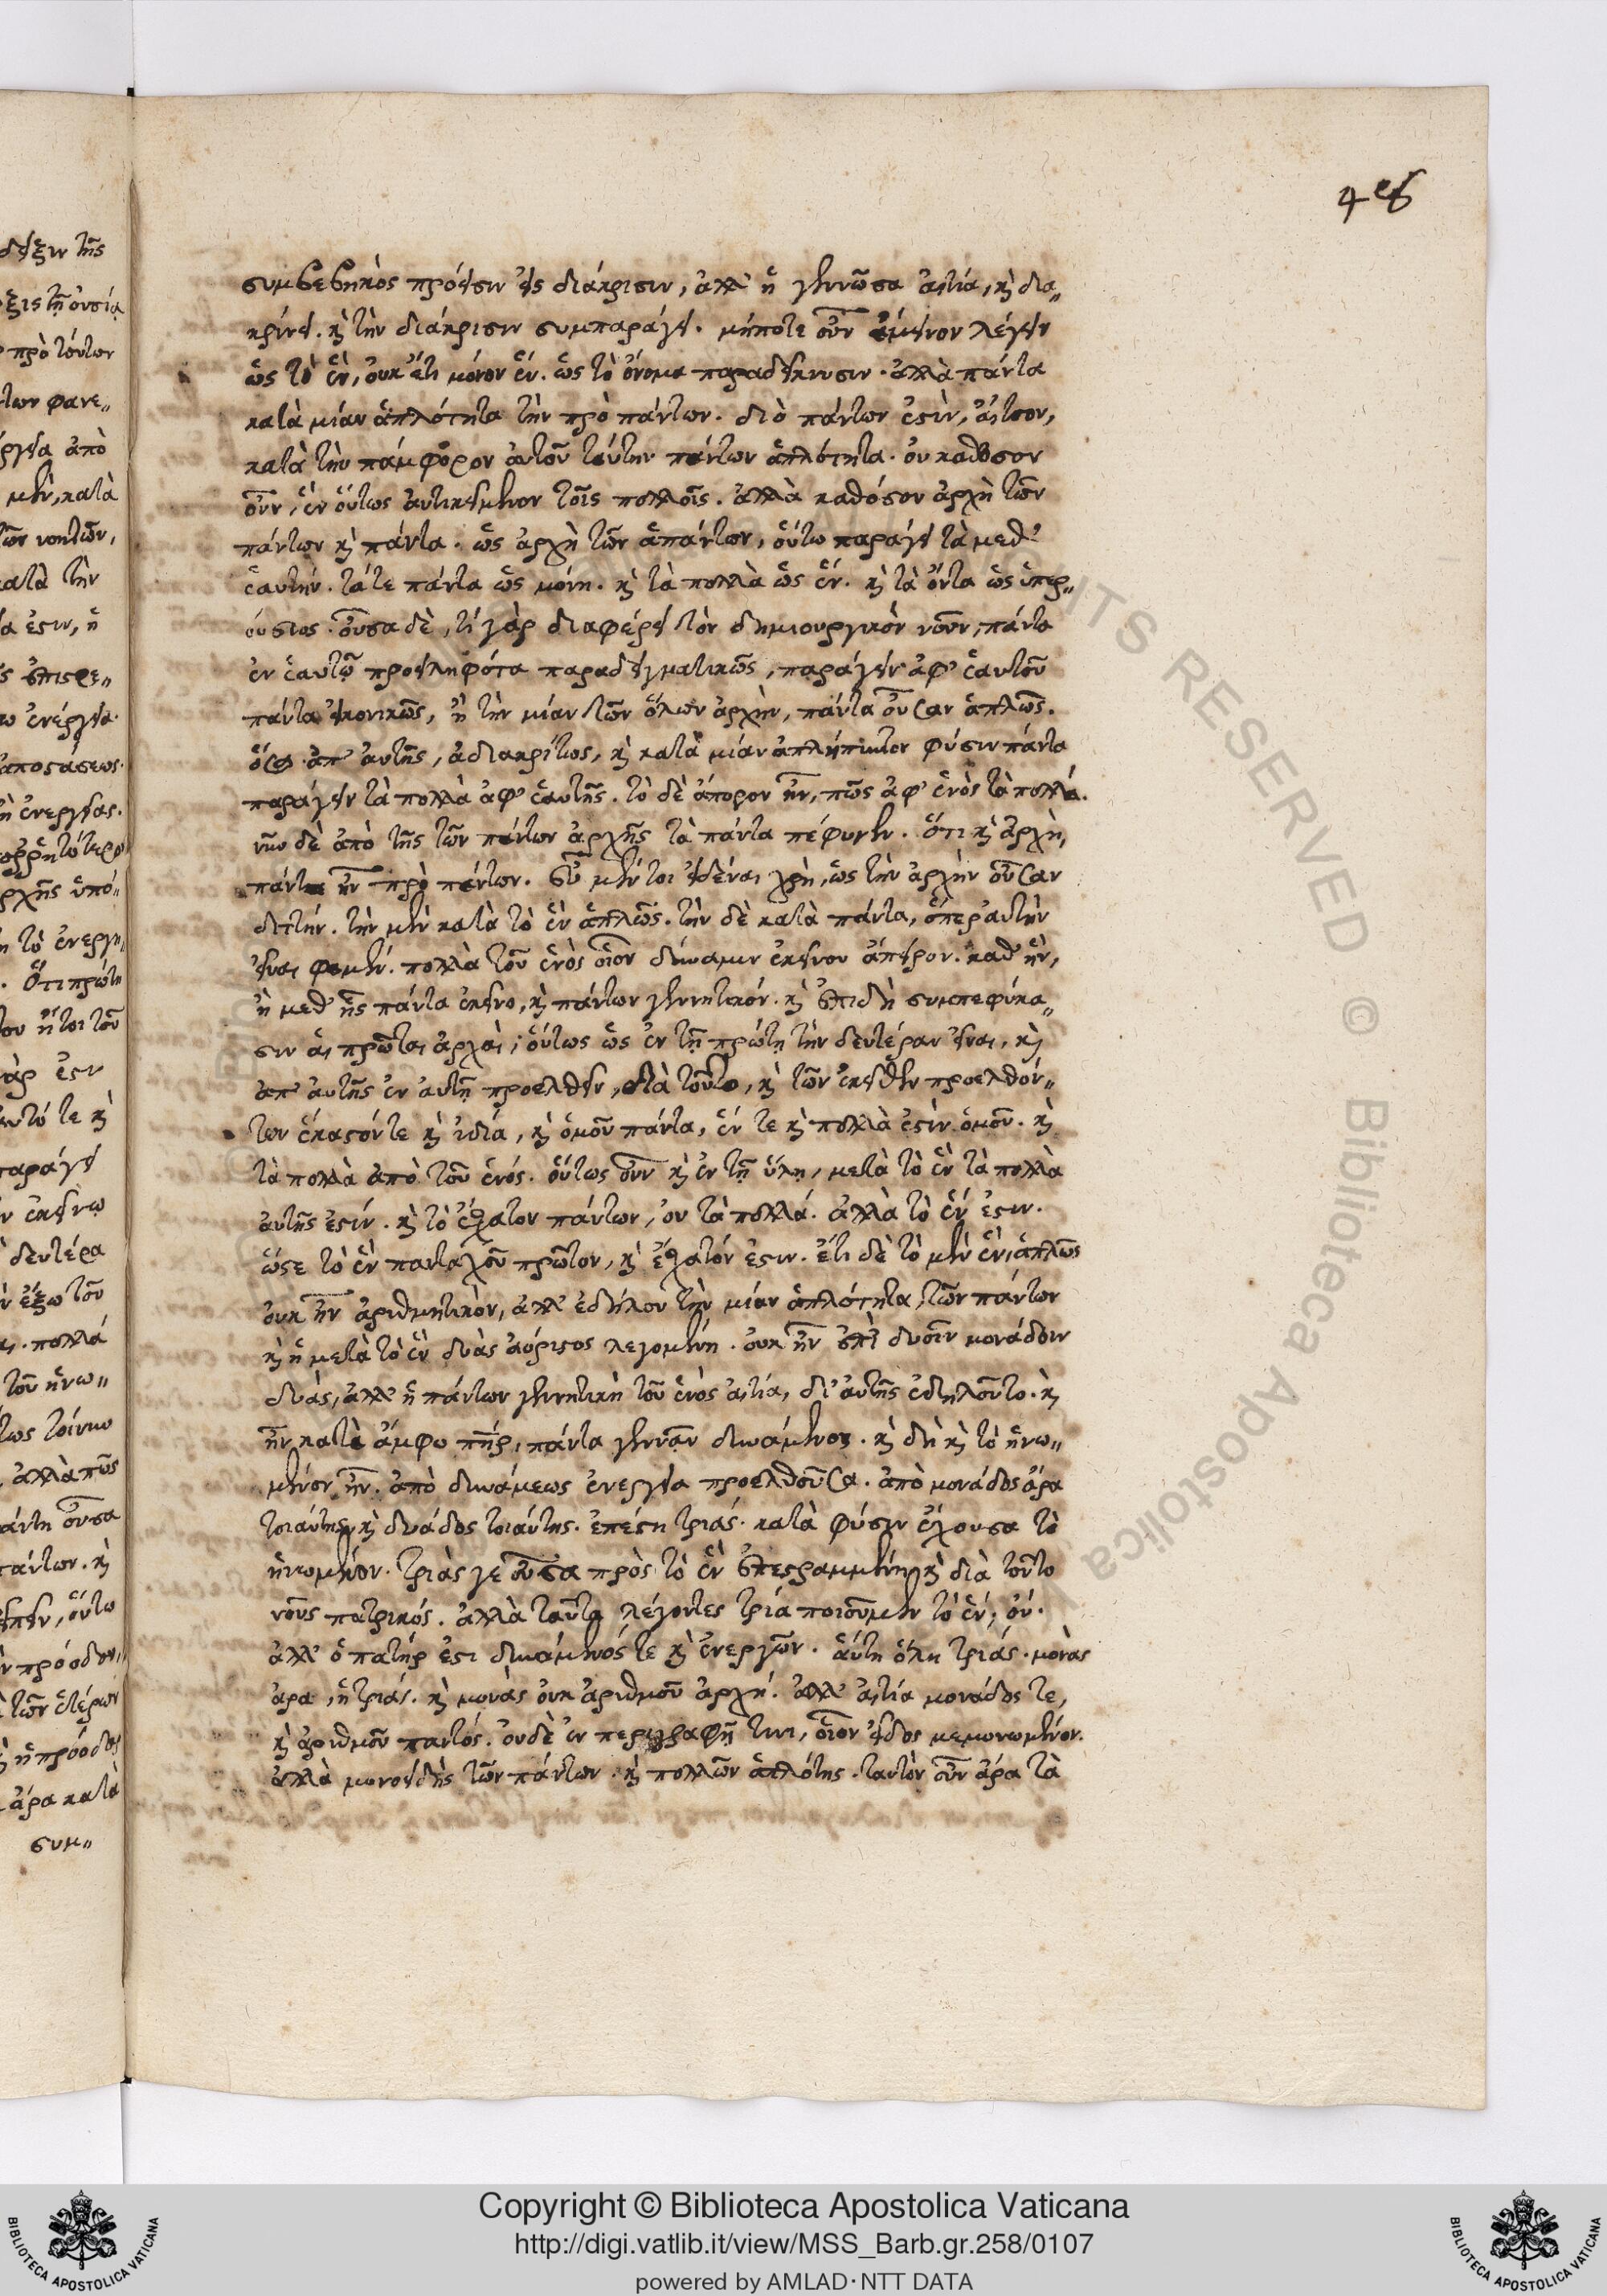 συμβεβηκὸς πρόεισιν εἰς διάκρισιν, ἀλλ' ἡ γεννῶσα αἰτία, κὶ δια„
κρίνει. κὶ τὴν διάκρισιν συμπαράγει. μήποτε οὖν ἄμεινον λέγειν
ὡς τὸ ἓν, οὐκ ἔτι μόνον ἕν. ὡς τὸ ὄνομα παραδείκνυσιν. ἀλλὰ πάντα
κατὰ μίαν ἁπλότητα τὴν πρὸ πάντων. διὸ πάντων ἐστὶν, αἴτιον,
κατὰ τὴν πάμφορον αὐτοῦ ταύτην πάντων ἁπλότητα. οὐ καθόσον
οὖν, ἓν οὕτως ἀντικείμενον τοῖς πολλοῖς. ἀλλὰ καθόσον ἀρχὴ τῶν
πάντων κὶ πάντα. ὡς ἀρχὴ τῶν ἁπάντων, οὕτω παράγει τὰ μεθ'
ἑαυτήν. τάτε πάντα ὡς μόνη. κὶ τὰ πολλὰ ὡς ἕν. κὶ τὰ ὄντα ὡς ὑπερ„
ούσιος. οὖσα δὲ, τί γὰρ διαφέρει τὸν δημιουργικὸν νοῦν, πάντα
ἐν ἑαυτῷ προειληφότα παραδειγματικῶς, παράγειν ἀφ' ἑαυτοῦ
πάντα εἰκονικῶς, ἢ τὴν μίαν τῶν ὅλων ἀρχὴν, πάντα οὖσαν ἁπλῶς.
ὅσα ἀπ' αὐτῆς, ἀδιακρίτως, κὶ κατὰ μίαν φύσιν πάντα
παράγειν τὰ πολλὰ ἀφ' ἑαυτῆς. τὸ δὲ ἄπορον ἦν, πῶς ἀφ' ἑνὸς τὰ πολλά.
νῦν δὲ ἀπὸ τῆς τῶν πάντων ἀρχῆς τὰ πάντα πέφυκεν. ὅτι κὶ ἀρχὴ,
πάντα ἦν πρὸ πάντων. οὐ μέν τοι εἰδέναι χρὴ, ὡς τὴν ἀρχὴν οὖσαν
διττήν. τὴν μὲν κατὰ τὸ ἓν ἁπλῶς. τὴν δὲ κατὰ πάντα, ὅπερ αὐτὴν
εἶναι φαμέν. πολλὰ τοῦ ἑνὸς οἷον δύναμιν ἐκείνου ἄπειρον. καθ' ἣν,
ἢ μεθ' ἧς πάντα ἐκεῖνο, κὶ πάντων γεννητικόν. κὶ ἐπειδὴ συμπεφύκα„
σιν αἱ πρῶται ἀρχαὶ, οὕτως ὡς ἐν τῇ πρώτῃ τὴν δευτέραν εἶναι, κὶ
ἀπ' αὐτῆς ἐν αὐτῇ προελθεῖν, διὰ τοῦτο, κὶ τῶν ἐκεῖθεν προελθόν„
των ἕκαστόν τε κὶ ἰδία, κὶ ὁμοῦ πάντα, ἕν τε κὶ πολλὰ ἐστὶν ὁμοῦ. κὶ
τὰ πολλὰ ἀπὸ τοῦ ἑνός. οὕτως οὖν κὶ ἐν τῇ ὕλῃ, μετὰ τὸ ἓν τὰ πολλὰ
αὐτῆς ἐστίν. κὶ τὸ ἔσχατον πάντων, οὐ τὰ πολλά. ἀλλὰ τὸ ἕν ἐστιν.
ὥστε τὸ ἓν πανταχοῦ πρῶτον, κὶ ἔσχατόν ἐστιν. ἔτι δὲ τὸ μὲν ἓν, ἁπλῶς
οὐκ ἦν ἀριθμητικὸν, ἀλλ' ἐδήλου τὴν μίαν ἁπλότητα, τῶν πάντων
κὶ ἡ μετὰ τὸ ἓν δυὰς ἀόριστος λεγομένη. οὐκ ἦν ἐπὶ δυοῖν μονάδοιν
δυὰς, ἀλλ' ἡ πάντων γεννητικὴ τοῦ ἑνὸς αἰτία, δι' αὐτῆς ἐδηλοῦτο. κὶ
ἦν κατὰ ἄμφω πῆρ, πάντα γεννᾶν δυνάμενος. κὶ δὴ κὶ τὸ ἡνω„
μένον ἦν. ἀπὸ δυνάμεως ἐνεργεία προελθοῦσα. ἀπὸ μονάδος ἄρα
τοιαύτης, κὶ δυάδος τοιαύτης. ἐπέστη τριάς. κατὰ φύσιν ἔχουσα τὸ
ἡνωμένον. τριάς γε οὖσα πρὸς τὸ ἓν ἐπεστραμμένη κὶ διὰ τοῦτο
νοῦς πατρικός. ἀλλὰ ταῦτα λέγοντες τρία ποιοῦμεν τὸ ἕν, οὔ.
ἀλλ' ὁ πατήρ ἐστι δυνάμενός τε κὶ ἐνεργῶν. αὕτη ὅλη τριάς. μονὰς
ἄρα, ἡ τριάς. κὶ μονὰς οὐκ ἀριθμοῦ ἀρχή. ἀλλ' αἰτία μονάδος τε,
κὶ ἀριθμοῦ παντός. οὐδὲ ἐν περιγραφῇ τινι, οἷον εἶδος μεμονωμένον.
ἀλλὰ μονοειδὴς τῶν πάντων. κὶ πολλῶν ἁπλότης. ταυτὸν οὖν ἄρα τὰ
Copyright © Biblioteca Apostolica Vaticana
http://digi.vatlib.it/view/MSS_Barb.gr.258/0107
powered by AMLAD·NTT DATA